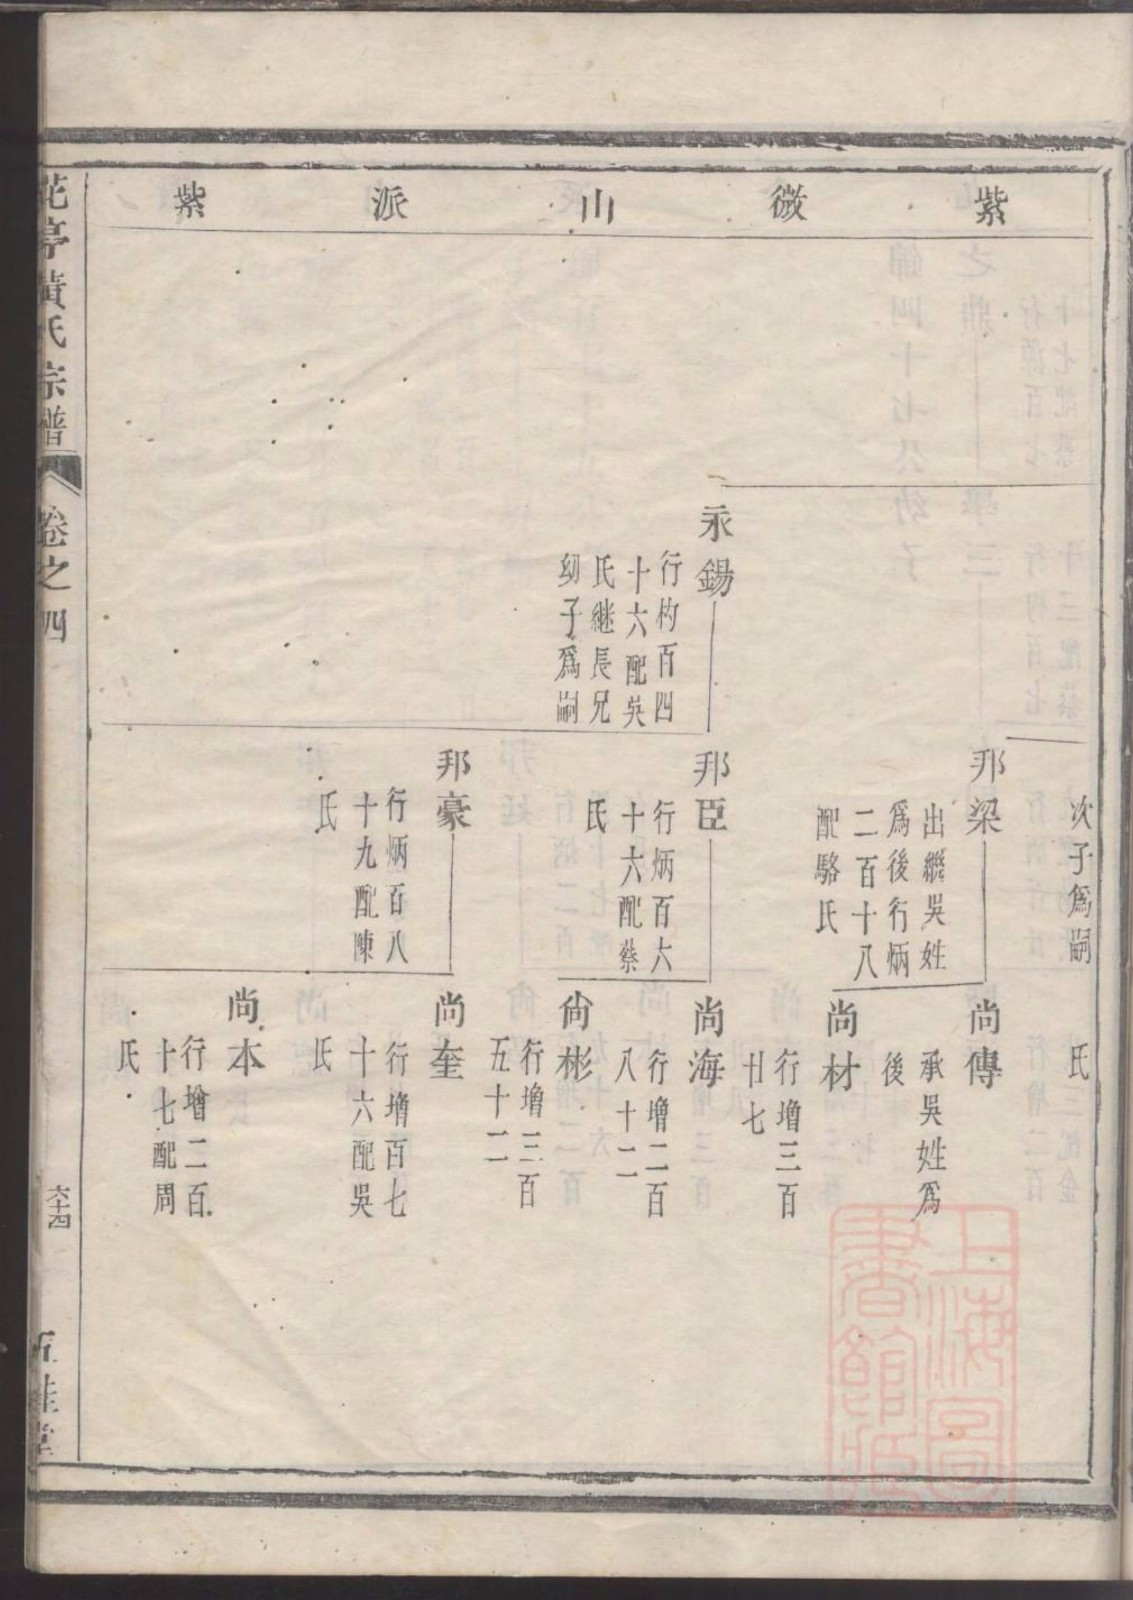 紫微山派紫
次子爲嗣
氏
永錫
行杓百四
十六配吳
氏繼長兄
幼子爲嗣
邦梁
出繼吳姓
爲後行炳
二百十八
配駱氏
邦臣
行炳百六
十六配蔡
氏
邦豪
行炳百八
十九配陳
氏
尚傳
承吳姓爲
後
尚材
行增三百
廿七
尚海
行增二百
八十二
尙彬
行增三百
五十二
尚奎
行增百七
十六配吳
氏
尚本
行增二百
十七配周
氏
花亭黃氏宗譜
卷之四
六十四
五桂堂
上海圖
書館藏